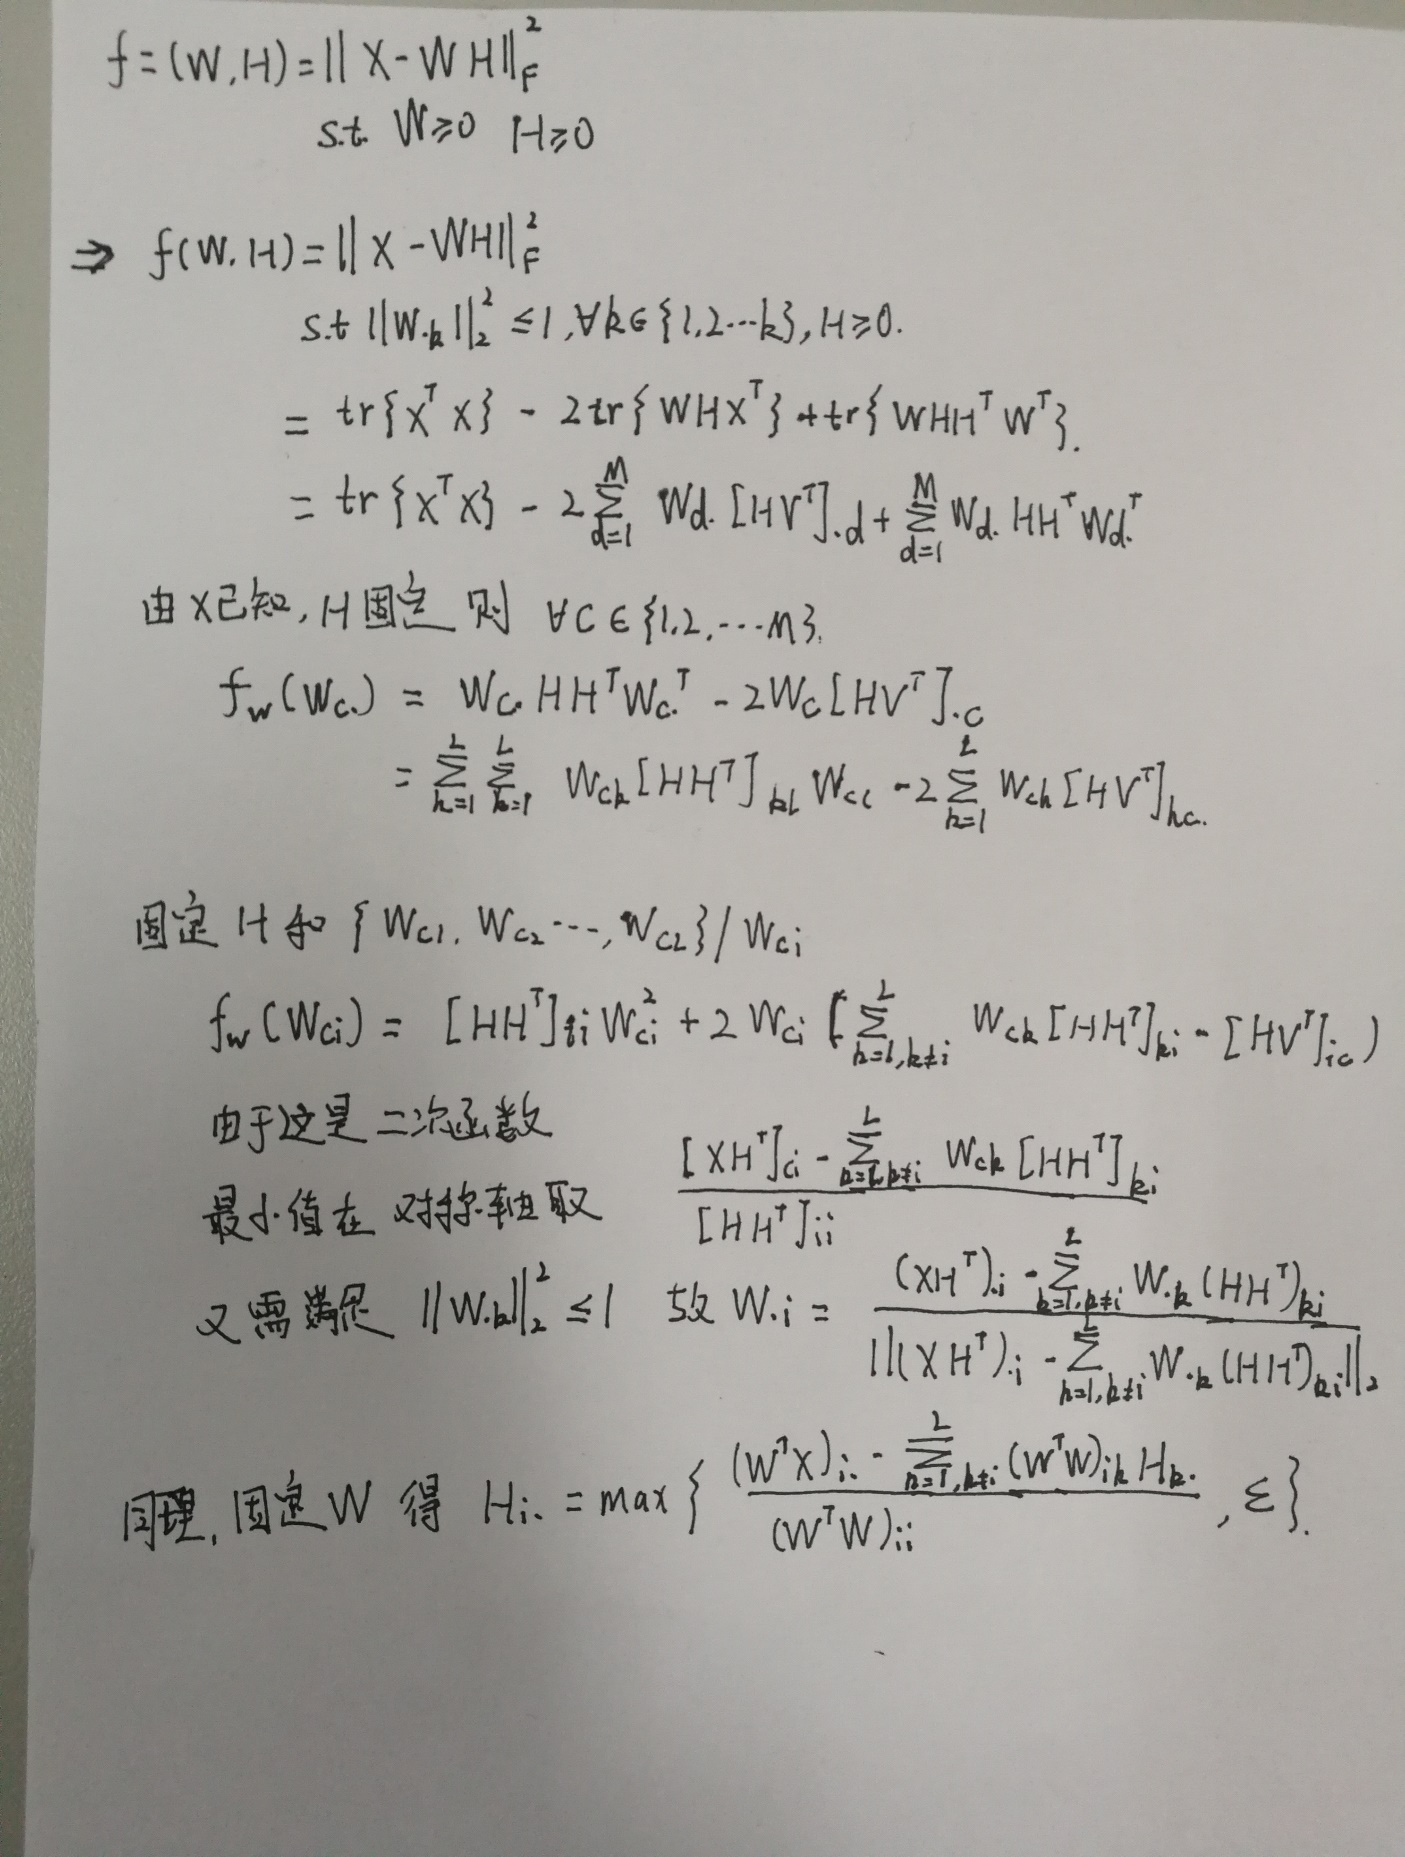 f=(W,H)=||X-WH||_F^2
s.t. W≥0 H≥0
⇒ f(W,H)=||X-WH||_F^2
s.t ||W_{·k}||_2^2 ≤1, ∀k∈{1,2···k}, H≥0.
= tr{X^T X} - 2tr{WHX^T} + tr{WHH^T W^T}.
= tr{X^T X} - 2∑_{d=1}^{M} W_{d·}[HV^T]_{·d} + ∑_{d=1}^{M} W_{d·}HH^T W_{d·}^T
由X已知,H固定 则 ∀C∈{1,2,···M}.
f_w(W_{c·}) = W_{c·}HH^T W_{c·}^T - 2W_c[HV^T]_{·c}
= ∑_{k=1}^{L} ∑_{k=1}^{L} W_{ck}[HH^T]_{kl} W_{cl} - 2∑_{k=1}^{L} W_{ck}[HV^T]_{kc}.
固定 H 和 {W_{c1}, W_{c2}···, W_{cL}}/W_{ci}
f_w(W_{ci}) = [HH^T]_{ii} W_{ci}^2 + 2W_{ci}(∑_{k=1,k≠i}^{L} W_{ck}[HH^T]_{ki} - [HV^T]_{ic})
由于这是二次函数
最小值在对称轴取 \frac{[XH^T]_{ci} - ∑_{k=1,k≠i}^{L} W_{ck}[HH^T]_{ki}}{[HH^T]_{ii}}
又需满足 ||W_{·k}||_2^2 ≤1 故 W_{·i} = \frac{(XH^T)_{·i} - ∑_{k=1,k≠i}^{L} W_{·k}(HH^T)_{ki}}{||(XH^T)_{·i} - ∑_{k=1,k≠i}^{L} W_{·k}(HH^T)_{ki}||_2}
同理,固定W 得 H_{i·} = max{\frac{(W^T X)_{i·} - ∑_{k=1,k≠i}^{L} (W^T W)_{ik} H_{k·}}{(W^T W)_{ii}}, ε}.